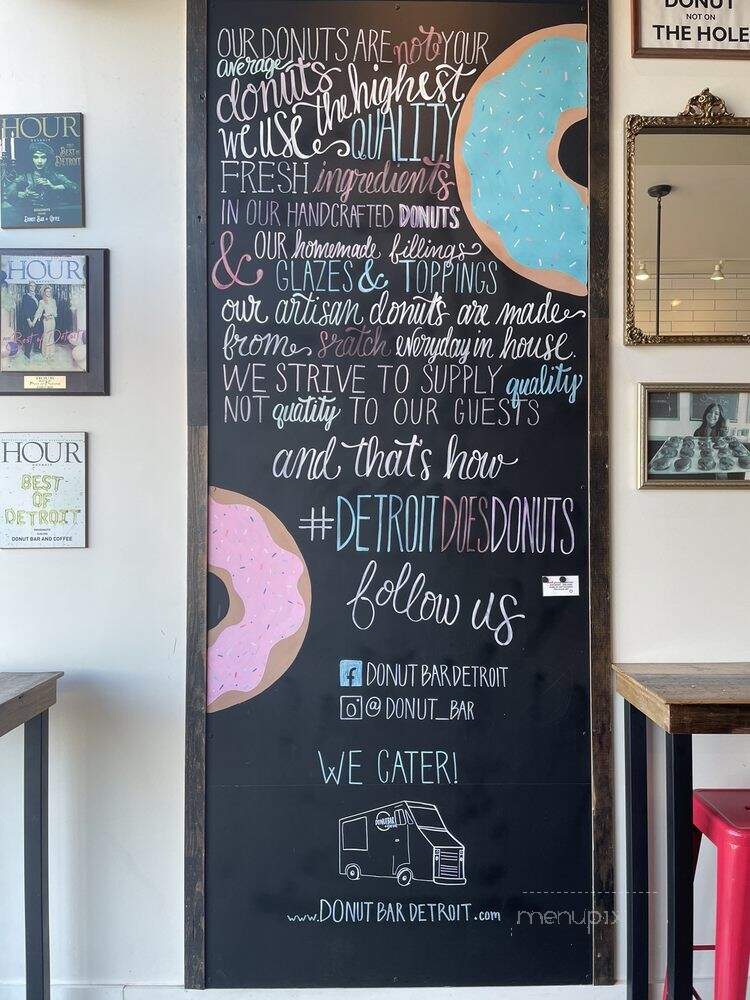 OUR DONUTS ARE not YOUR
average
donuts
we use the highest
QUALITY
FRESH ingredients
IN OUR HANDCRAFTED DONUTS
& OUR homemade fillings
GLAZES & TOPPINGS
our artisan donuts are made
from sratch everyday in house.
WE STRIVE TO SUPPLY quality
NOT quatity TO OUR GUESTS
and that's how
#DETROITDOESDONUTS
follow us
f DONUT BAR DETROIT
@DONUT_BAR
WE CATER!
DONUT BAR
www.DONUTBARDETROIT.com
menupix
HOUR
DETROIT
BEST OF DETROIT
DONUT BAR + COFFEE
HOUR
Best of Detroit
HOUR
DETROIT
BEST
OF
DETROIT
DONUT BAR AND COFFEE
DONUT
NOT ON
THE HOLE